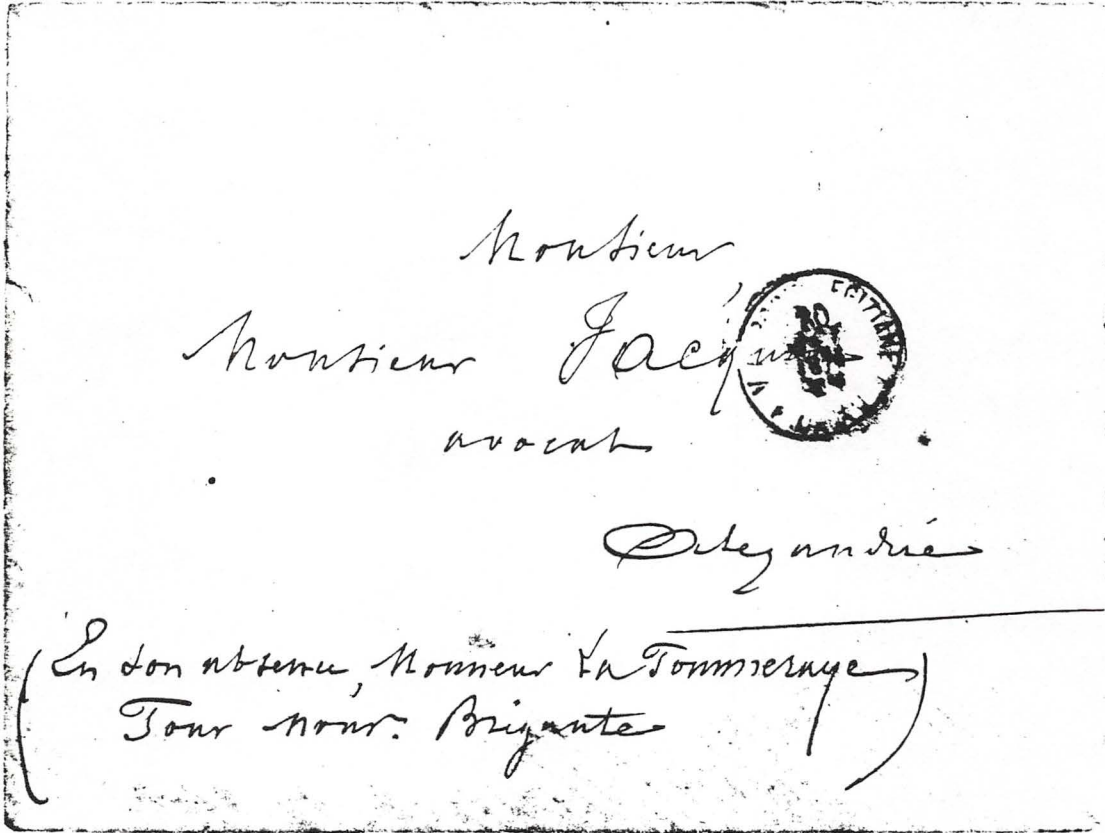 Monsieur
Monsieur Jacques
avocat
Alexandrie
(En son absence, Monsieur La Pommeraye)
Pour Monsr. Brigante